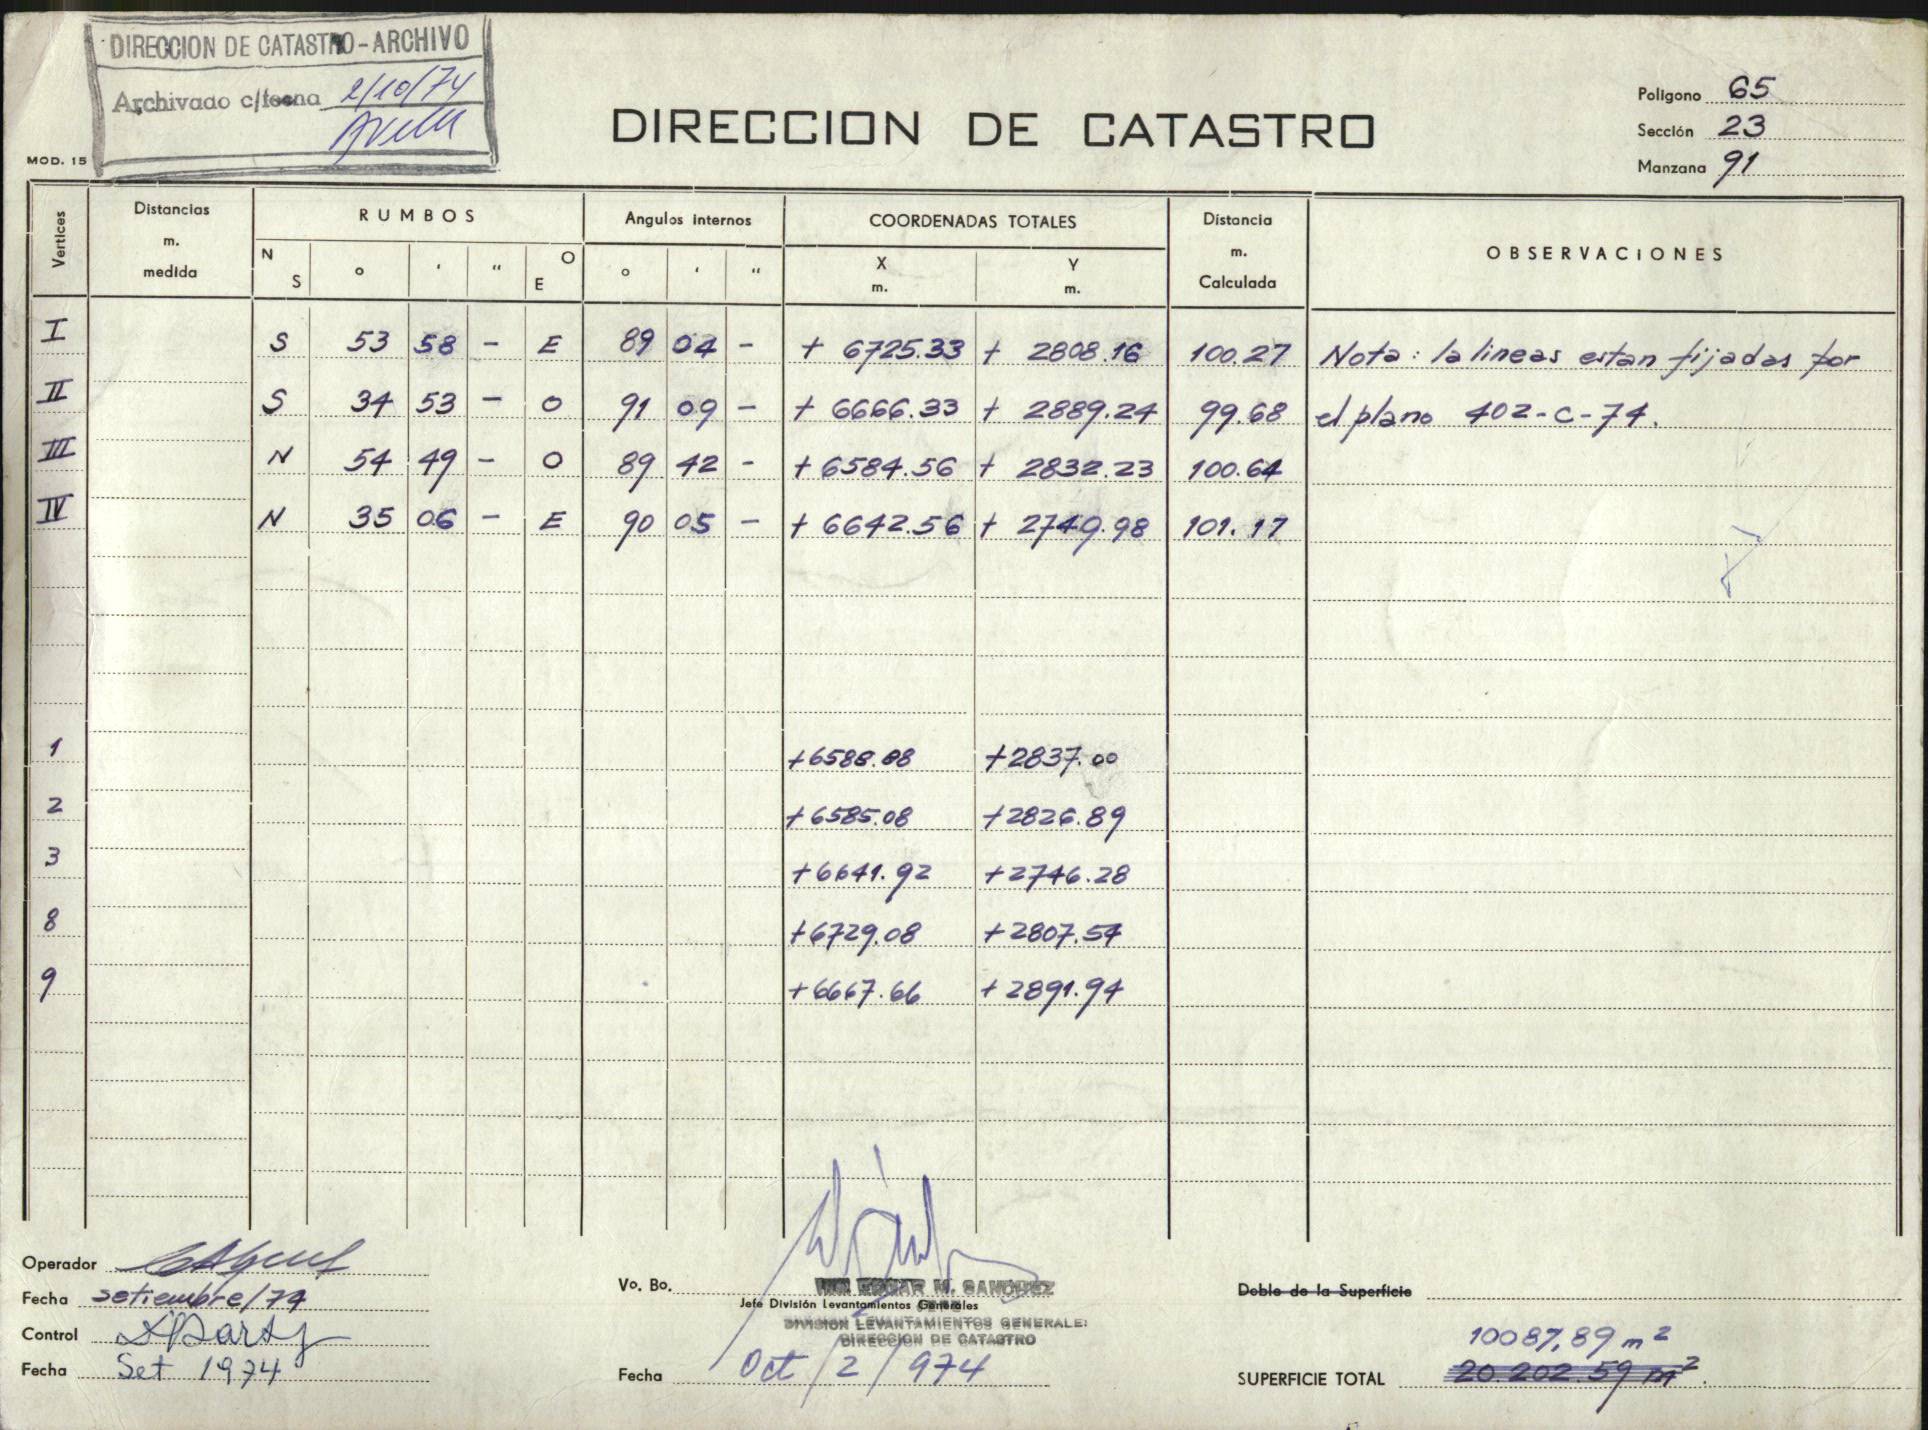 DIRECCION DE CATASTRO-ARCHIVO
Archivado c/fecha 2/10/74
MOD. 15
DIRECCION DE CATASTRO
Poligono 65
Sección 23
Manzana 91
Vertices Distancias m. medida RUMBOS N S ° ' " O E Angulos internos ° ' " COORDENADAS TOTALES X m. Y m. Distancia m. Calculada OBSERVACIONES
I S 53 58 - E 89 04 - + 6725.33 + 2808.16 100.27 Nota: la lineas estan fijadas por
II S 34 53 - O 91 09 - + 6666.33 + 2889.24 99.68 el plano 402-C-74.
III N 54 49 - O 89 42 - + 6584.56 + 2832.23 100.64
IV N 35 06 - E 90 05 - + 6642.56 + 2749.98 101.17
1 +6588.08 +2837.00
2 +6585.08 +2826.89
3 +6641.92 +2746.28
8 +6729.08 +2807.54
9 +6667.66 +2891.94
Operador
Fecha setiembre/74
Control
Fecha Set 1974
Vo. Bo.
ING. EDGAR M. SANCHEZ
Jefe División Levantamientos Generales
DIVISION LEVANTAMIENTOS GENERALES
DIRECCION DE CATASTRO
Fecha Oct/2/974
Doble de la Superficie
10087,89 m²
SUPERFICIE TOTAL 20.202.59 m².